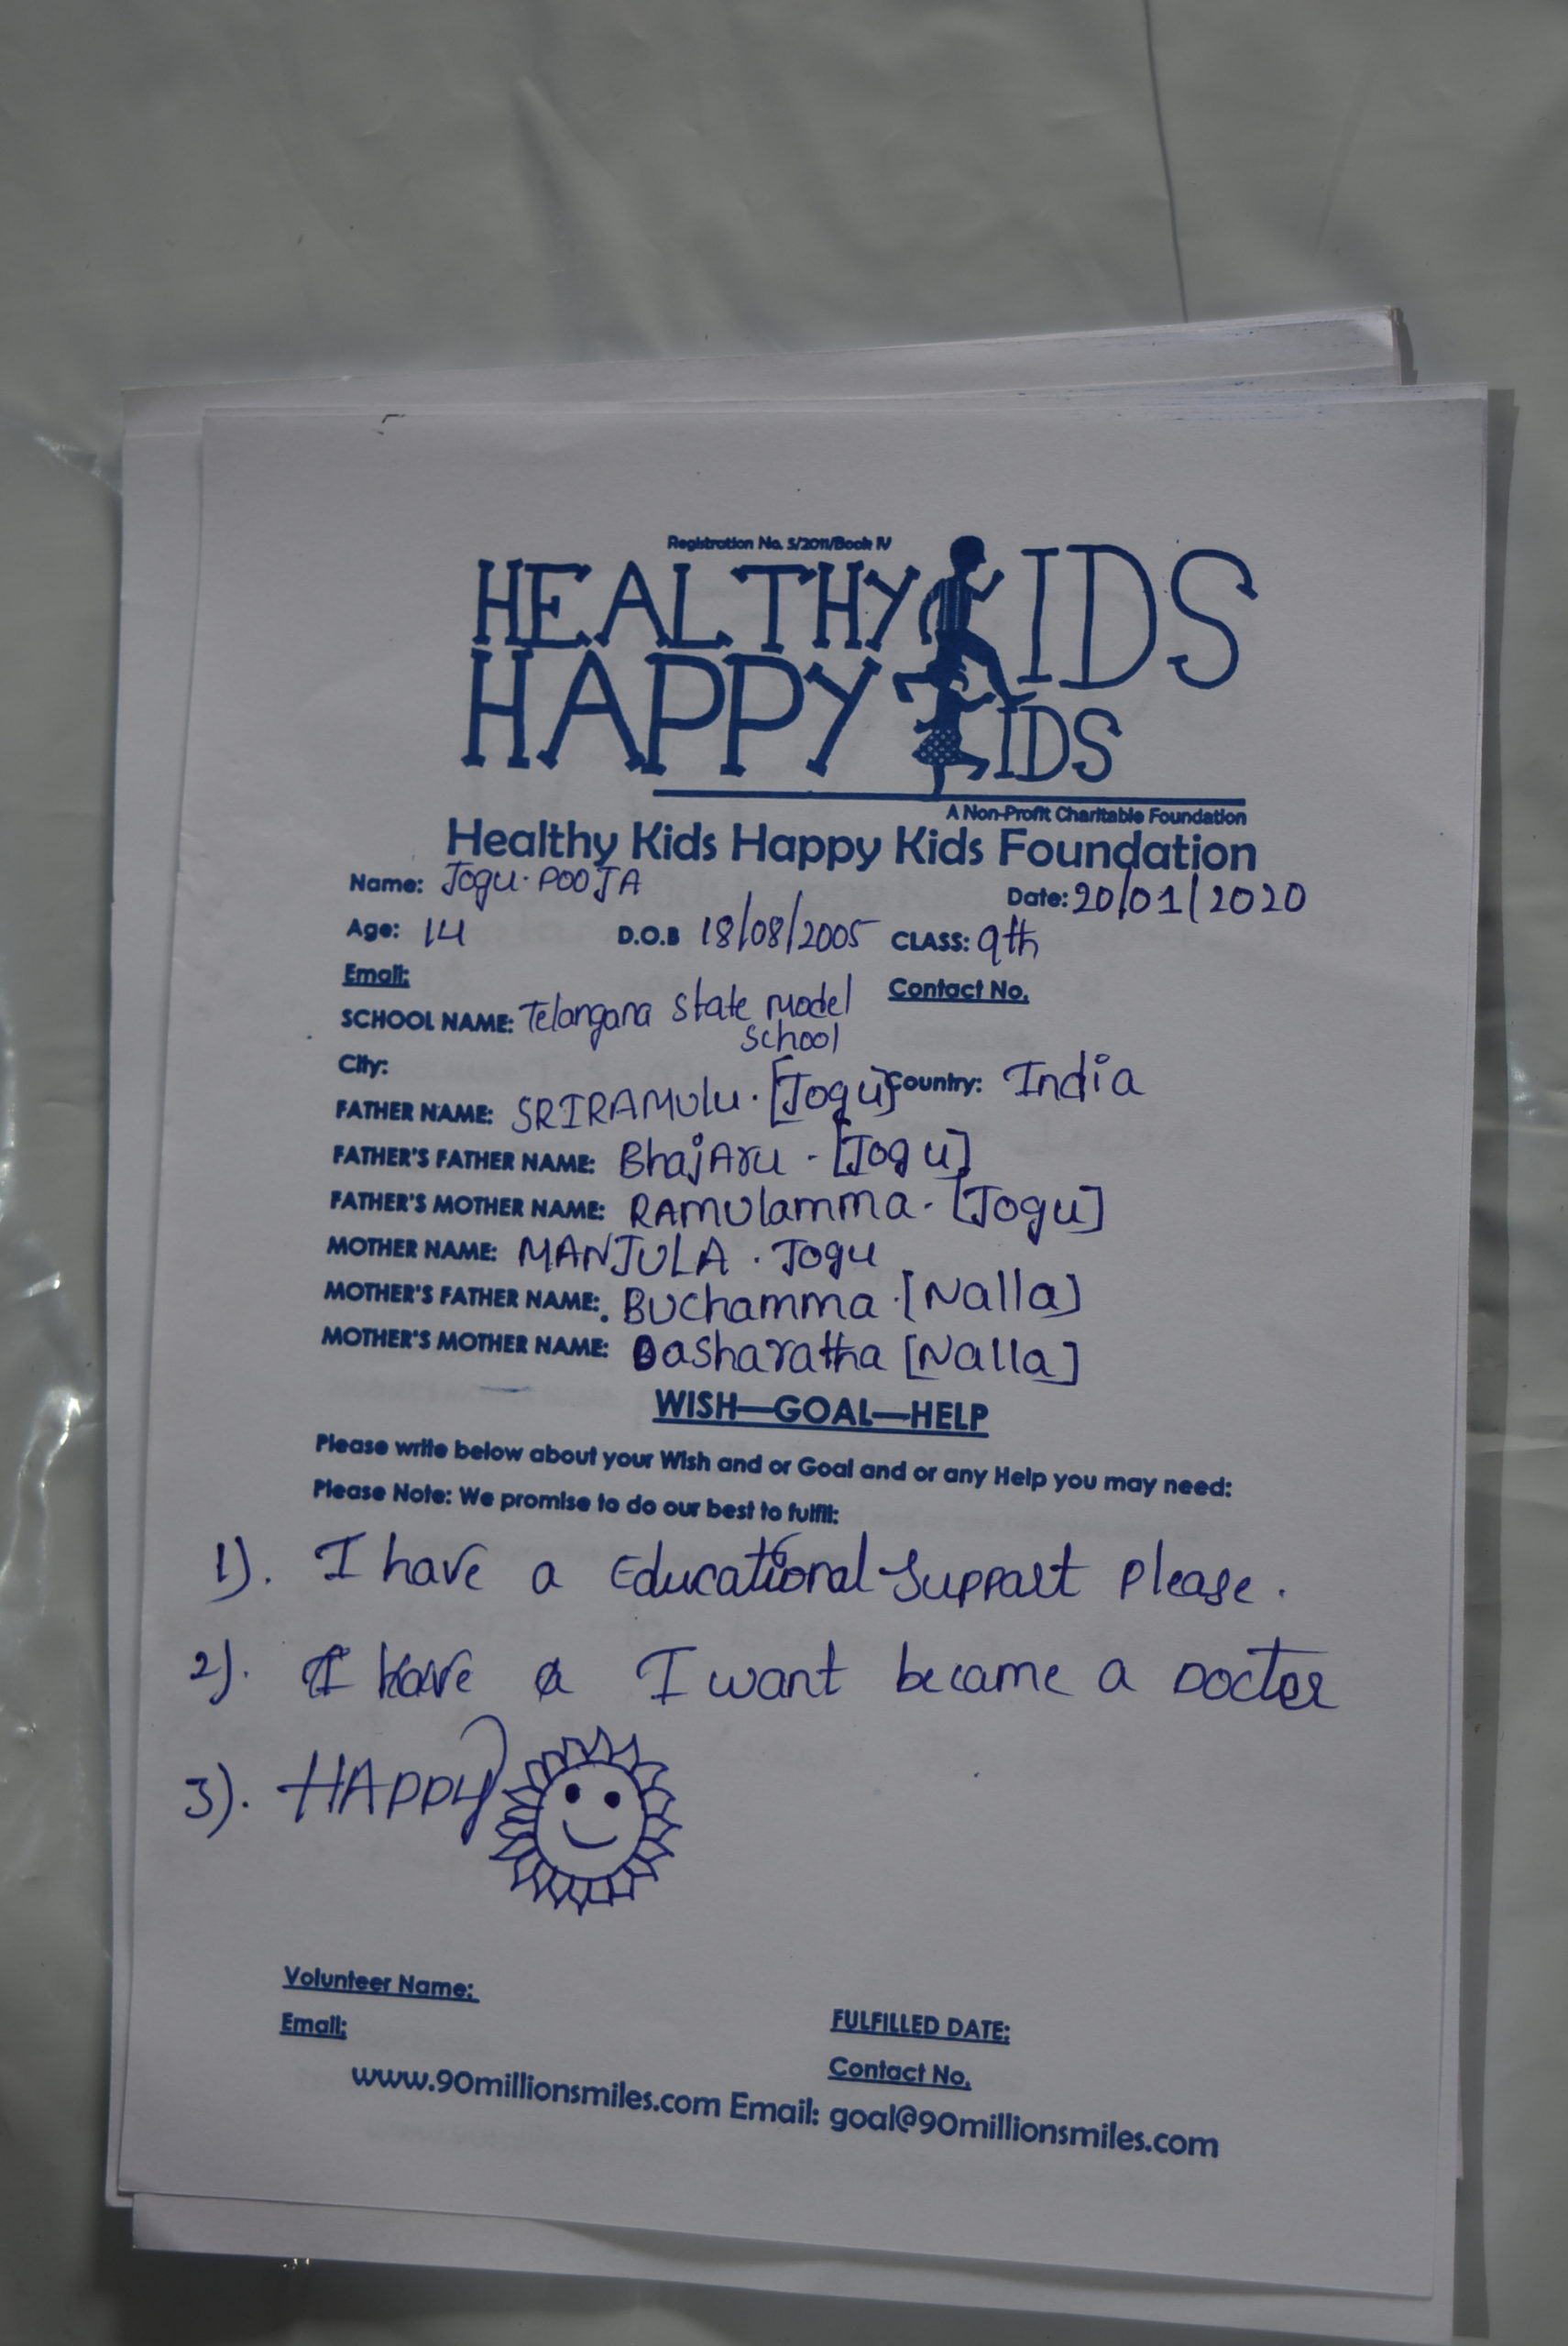 Registration No. 5/2011/Book IV
HEALTHY KIDS
HAPPY KIDS
A Non-Profit Charitable Foundation
Healthy Kids Happy Kids Foundation
Name: Jogu. POOJA
Date: 20/01/2020
Age: 14 D.O.B 18/08/2005 CLASS: 9th
Email: Contact No.
SCHOOL NAME: Telangana state model
school
City: Country: India
FATHER NAME: SRIRAMulu. [Jogu]
FATHER'S FATHER NAME: BhajAru - [Jogu]
FATHER'S MOTHER NAME: RAMUlamma. [Jogu]
MOTHER NAME: MANJULA . Jogu
MOTHER'S FATHER NAME: Buchamma . [Nalla]
MOTHER'S MOTHER NAME: Dasharatha [Nalla]
WISH—GOAL—HELP
Please write below about your Wish and or Goal and or any Help you may need:
Please Note: We promise to do our best to fulfil:
1). I have a Educational Support please.
2). I have a I want became a Doctor
3). HAPPY
Volunteer Name:
FULFILLED DATE:
Email:
Contact No.
www.90millionsmiles.com Email: goal@90millionsmiles.com